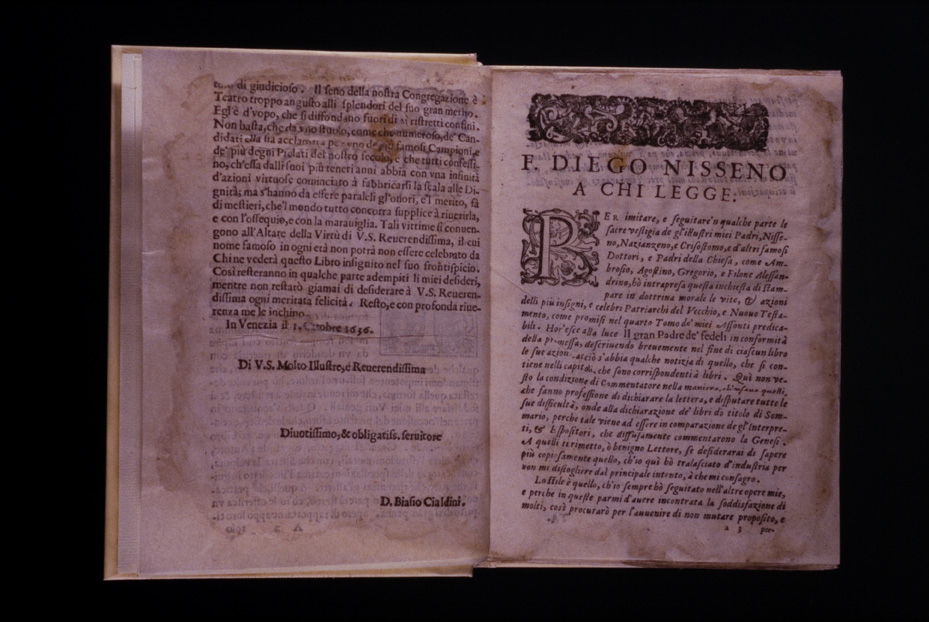 di giudicioso. Il seno della nostra Congregazione è
Teatro troppo angusto alli splendori del suo gran merito.
Egl'è d'vopo, che si diffondano fuori di sì ristretti confini.
Non basta, che da vno stuolo, come che numeroso, de' Can-
didati ella sia acclamata de' più famosi Campioni, e
de' più degni Prelati del nostro secolo, e che tutti confessi-
no, ch'essa dalli suoi più teneri anni abbia con vna infinità
d'azioni virtuose cominciato à fabbricarsi la scala alle Di-
gnità; ma s'hanno da essere paralesi gl'onori, e'l merito, fà
di mestieri, che'l mondo tutto concorra supplice à riuerirla,
e con l'ossequio, e con la marauiglia. Tali vittime si conuen-
gono all'Altare della Virtù di V.S. Reuerendissima, il cui
nome famoso in ogni età non potrà non essere celebrato da
Chi ne vederà questo Libro insignito nel suo frontispicio.
Così resteranno in qualche parte adempiti li miei desideri,
mentre non restarò giamai di desiderare à V.S. Reueren-
dissima ogni meritata felicità. Resto, e con profonda riue-
renza me le inchino.
In Venezia il 1. Ottobre 1636.
Di V.S. Molto Illustre, e Reuerendissima
Diuotissimo, & obligatiss. seruitore
D. Biasio Cialdini.
F. DIEGO NISSENO
A CHI LEGGE.
PER imitare, e seguitare'n qualche parte le
sacre vestigia de gl'illustri miei Padri, Nisse-
no, Nazianzeno, e Crisostomo, e d'altri famosi
Dottori, e Padri della Chiesa, come Am-
brosio, Agostino, Gregorio, e Filone Alessan-
drino, hò intrapresa questa inchiesta di stam-
pare in dottrina morale le vite, & azioni
delli più insigni, e celebri Patriarchi del Vecchio, e Nuouo Testa-
mento, come promisi nel quarto Tomo de' miei Assonti predica-
bili. Hor'esce alla luce Il gran Padre de' fedeli in conformità
della promessa, descriuendo breuemente nel fine di ciascun libro
le sue azioni acciò s'abbia qualche notizia di quello, che si con-
tiene nelli capitoli, che sono corrispondenti à libri. Quì non ve-
sto la condizione di Commentatore nella maniera, ch'usano questi,
che fanno professione di dichiarare la lettera, e disputare tutte le
sue difficultà, onde alla dichiarazione de' libri dò titolo di Som-
mario, perche tale viene ad essere in comparazione de gl'Interpre-
ti, & Espositori, che diffusamente commentarono la Genesi.
A quelli ti rimetto, ò benigno Lettore, se desiderarai di sapere
più copiosamente quello, ch'io quì hò tralasciato d'industria per
non mi distogliere dal principale intento, à che mi consagro.
Lo stile è quello, ch'io sempre hò seguitato nell'altre opere mie,
e perche in queste parmi d'auere incontrata la soddisfazione di
molti, così procurarò per l'auuenire di non mutare proposito, e
a 3 per-